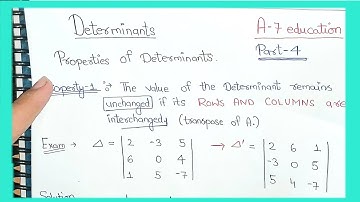 Determinants
A-7 education
Part-4
Properties of Determinants.
Property-1 : The value of the Determinant remains
unchanged if its ROWS AND COLUMNS are
interchangedy (transpose of A.)
Exam → Δ = | 2 -3 5 | → Δ' = | 2 6 1 |
| 6 0 4 | | -3 0 5 |
| 1 5 -7 | | 5 4 -7 |
Solution